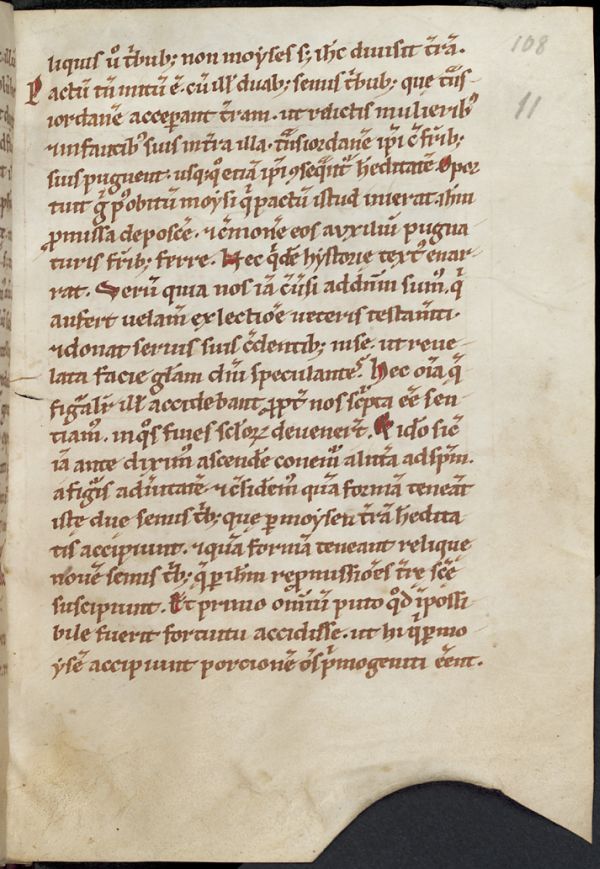 108
11
liquis ũ t̃bub; non moyses s; ih̃c diuisit t̃rã.
Pactũ tñ initũ ẽ. cũ ill̃ duab; semis t̃bub; que t̃ns
iordanẽ acceperant t̃ram. ut relictis mulierib;
⁊ infantib; suis in t̃ra illa. t̃nsiordanẽ ip̃i c̃ fr̃ib;
suis pugnent. usq; q̊ etiã ip̃i ꝯseq̃nt̃ h̃editatẽ. Opor
tuit g̊ p̊ obitũ moysi q̊ pactũ istud inierat ihm̃
ꝓmissa deposc̃e. ⁊ c̃monẽe eos auxiliũ pugna
turis fr̃ib; ferre. Hec q̃dẽ hystorie text᷒ enar
rat. Verũ quia nos iã c̃uersi ad dñm sum᷒. q̊
aufert uelam̃ ex lectiõe ueteris testam̃ti.
⁊ donat seruis suis c̃dentib; in se. ut reue
lata facie gl̃am dñi speculantes. Hec oĩa q̃
figuralr̃ ill̃ accidebant ꝓpt̃ nos sc̃pta eẽ sen
tiam᷒. in q̊s fines sc̃loꝝ deuener̃t. Et ido sic̃
iã ante dixim᷒ ascende conem᷒ a lit̃ra ad sp̃m.
a figuris ad ũitatẽ. ⁊ c̃sidem᷒ quã formã teneãt
iste due semis t̃b; que per moysen t̃rã h̃edita
tis accipiunt. ⁊ quã formã teneant relique
nouẽ semis t̃b; q̃ per ihm̃ repromissiões t̃re sc̃e
suscipiunt. Et primo omniũ puto q̊d ĩpossi
bile fuerit fortuitu accidisse. ut hi q̊ per mo
ysẽ accipiunt porcionẽ õs pͥmogeniti ẽent.